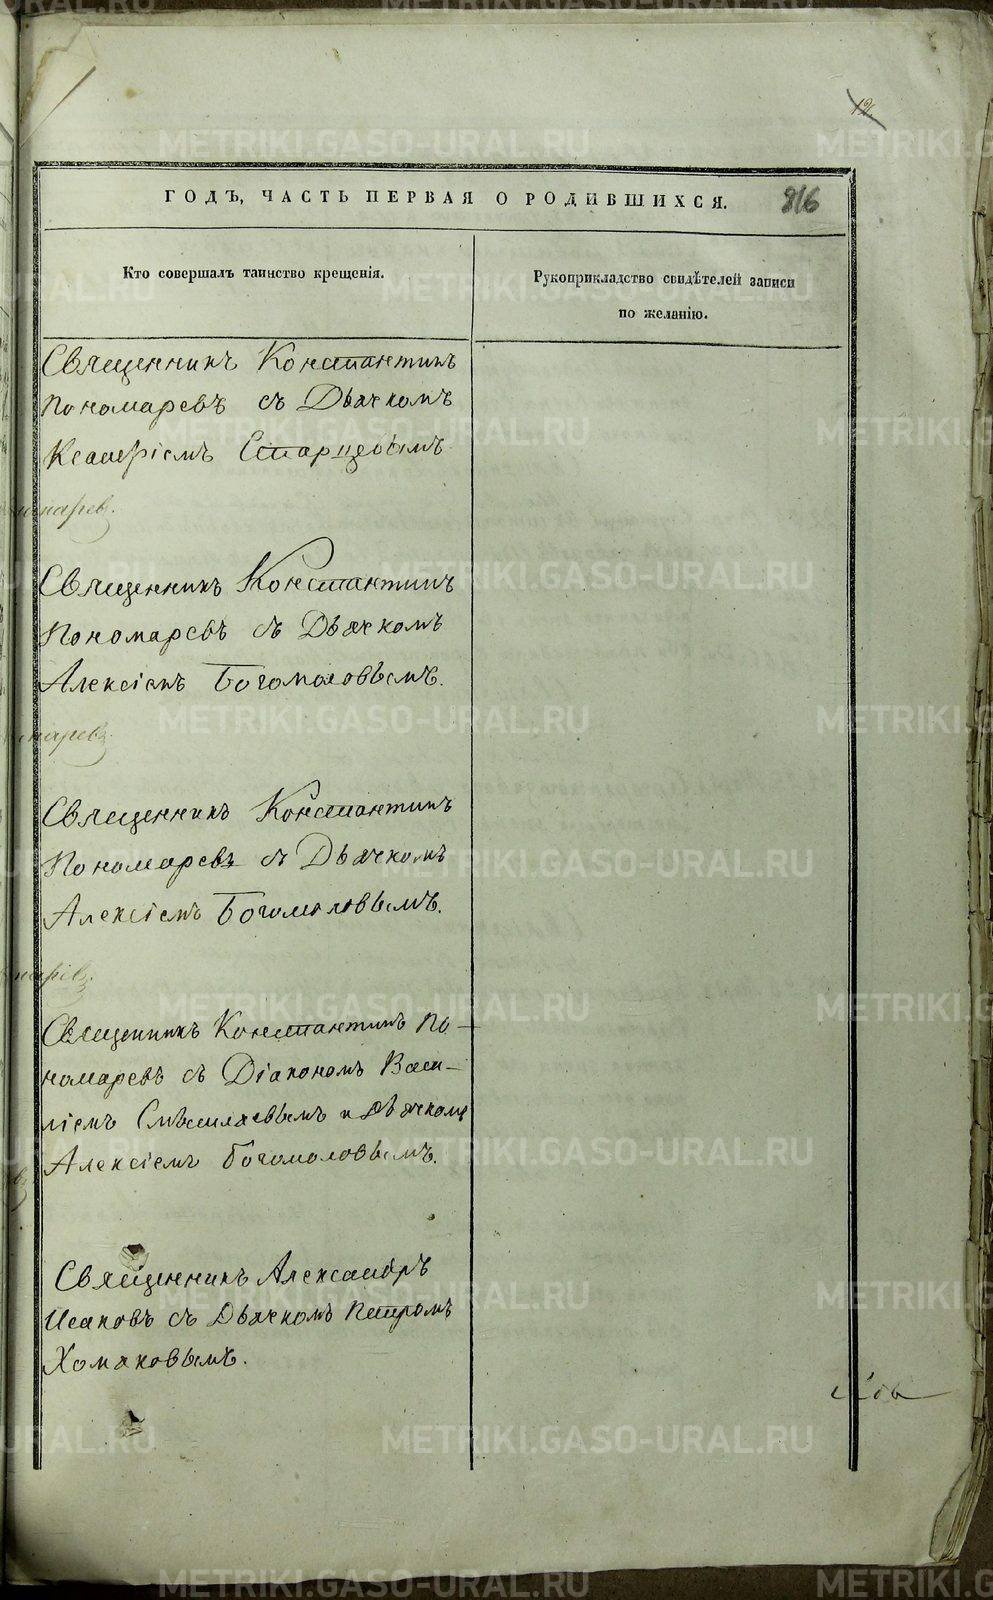 ГОДЪ, ЧАСТЬ ПЕРВАЯ О РОДИВШИХСЯ.
816
Кто совершалъ таинство крещенія.
Рукоприкладство свидѣтелей записи
по желанію.
Священникъ Константинъ
Пономаревъ съ Дьячкомъ
Старцевымъ
Священникъ Константинъ
Пономаревъ съ Дьячкомъ
Алексіемъ Богомоловымъ.
Священникъ Константинъ
Пономаревъ съ Дьячкомъ
Алексіемъ Богомоловымъ.
Священникъ Константинъ По-
номаревъ съ Діакономъ Васи-
ліемъ и Дьячкомъ
Алексіемъ Богомоловымъ.
Священникъ Александръ
Исаковъ съ Дьячкомъ Петромъ
Хомяковымъ.
METRIKI.GASO-URAL.RU